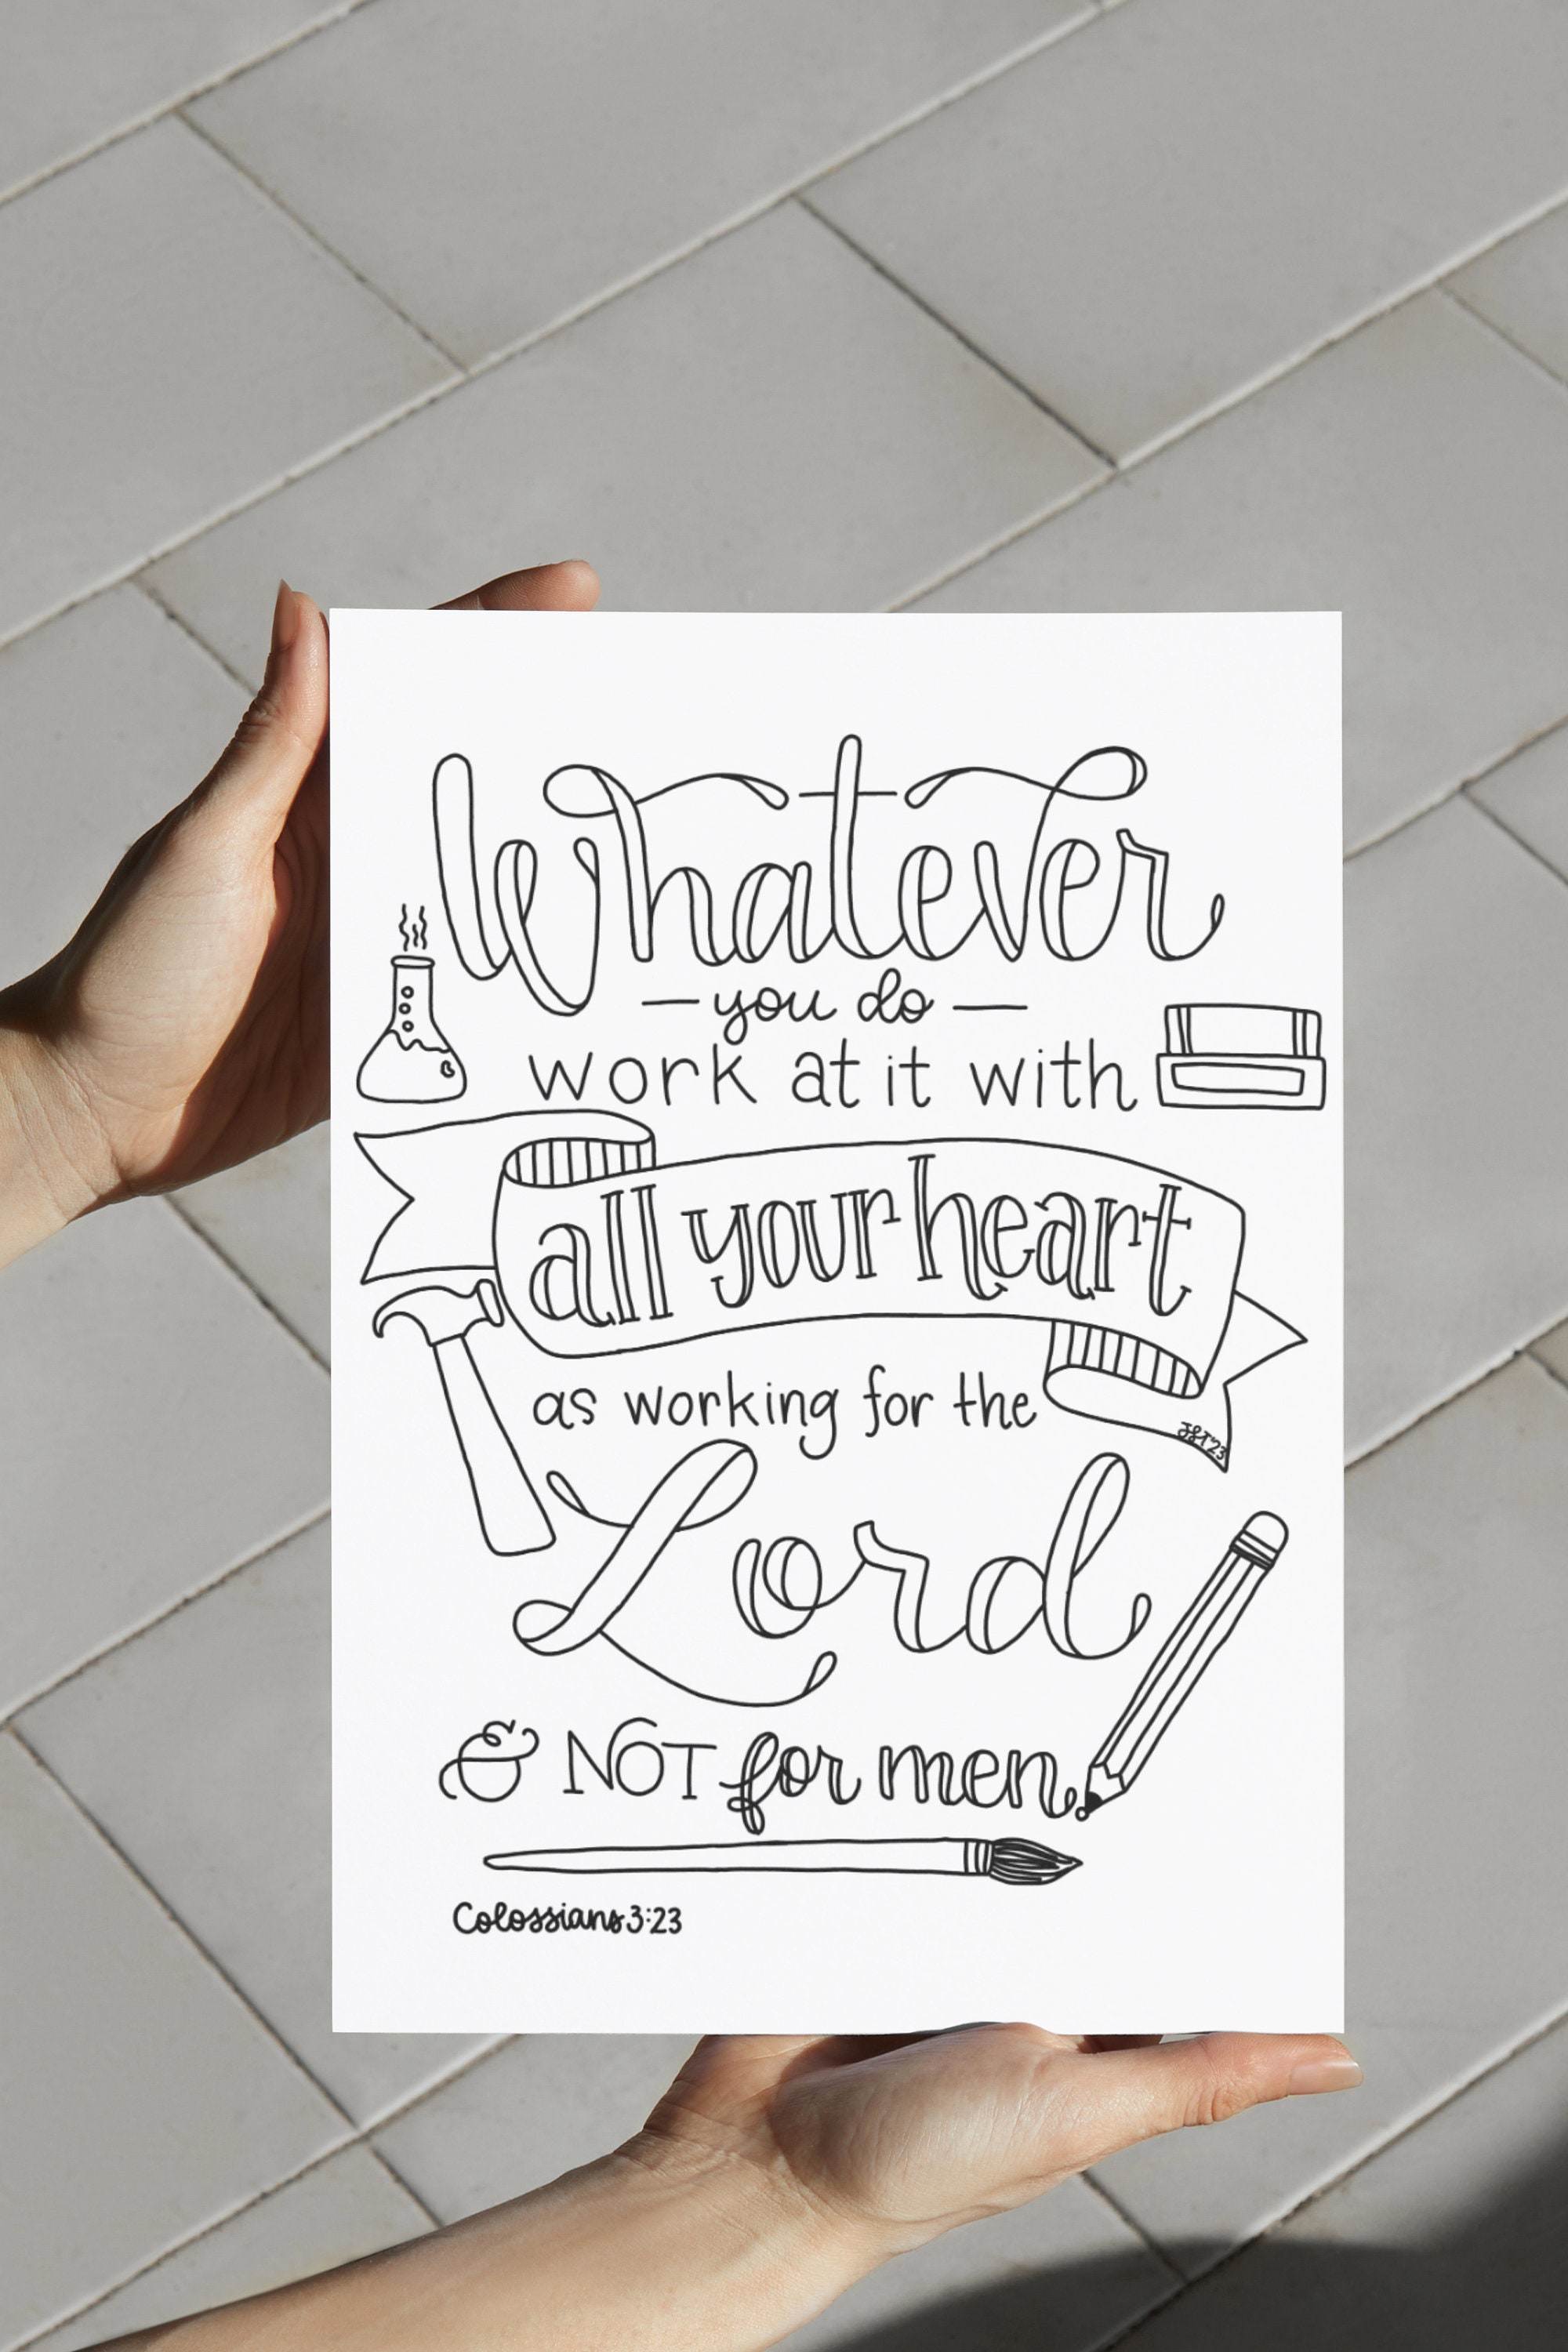 Whatever
you do
work at it with
all your heart
as working for the
Lord
& NOT for men.
Colossians 3:23